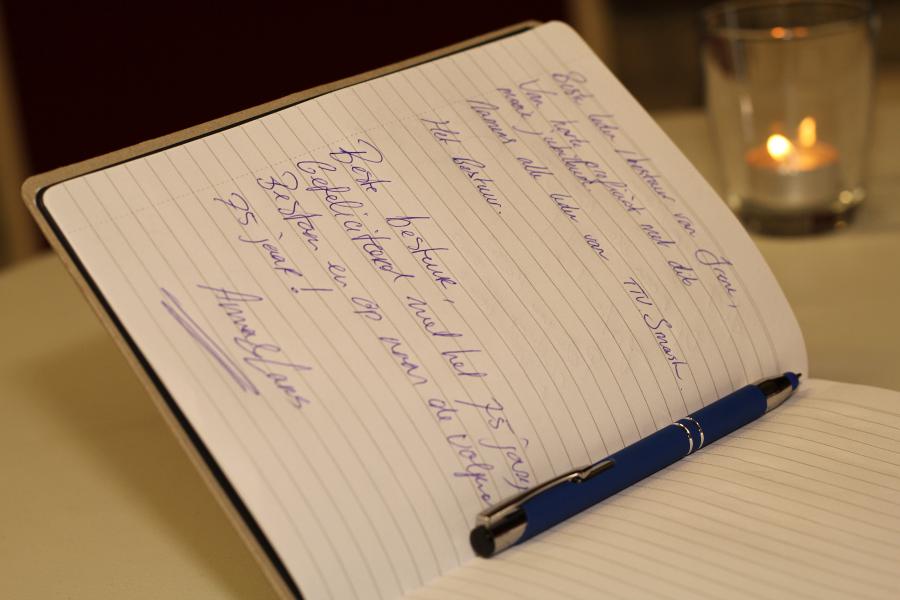 Beste leden / bestuur van
Van harte gefeliciteerd met dit
mooie jubileum
Namens alle leden van TV Smash
Het bestuur.
Beste bestuur,
Gefeliciteerd met het 75 jarig
Bestaan en op naar de volgende
75 jaar!